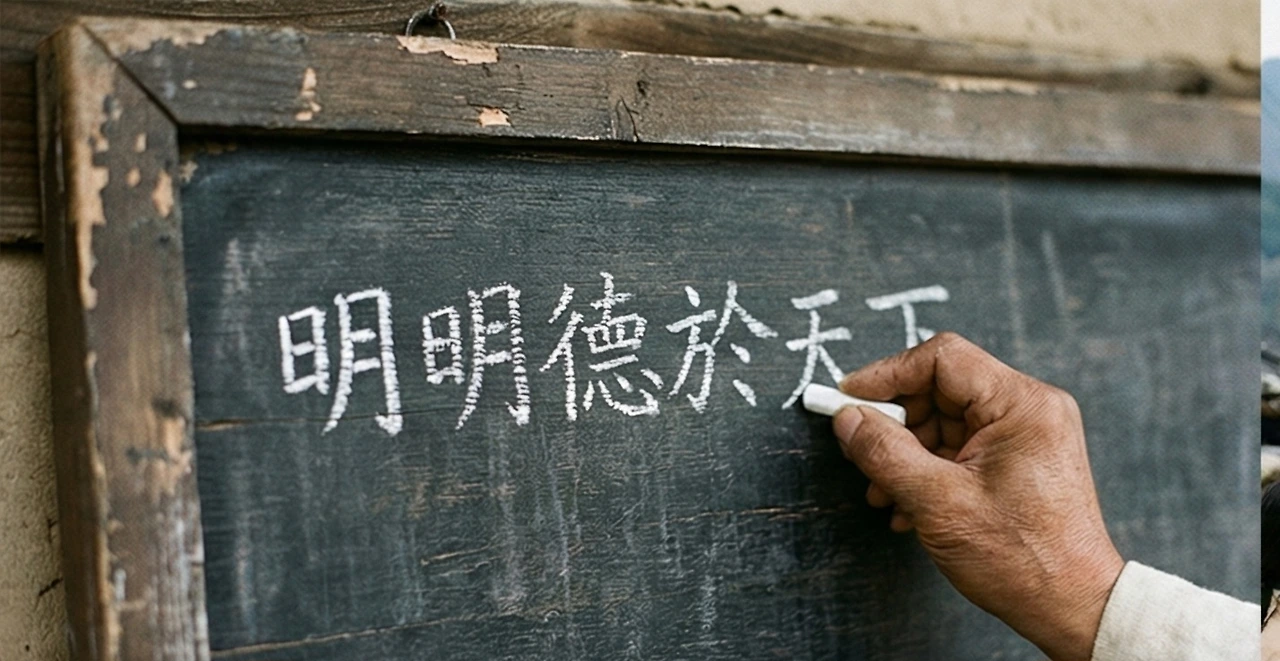 明明德於天下